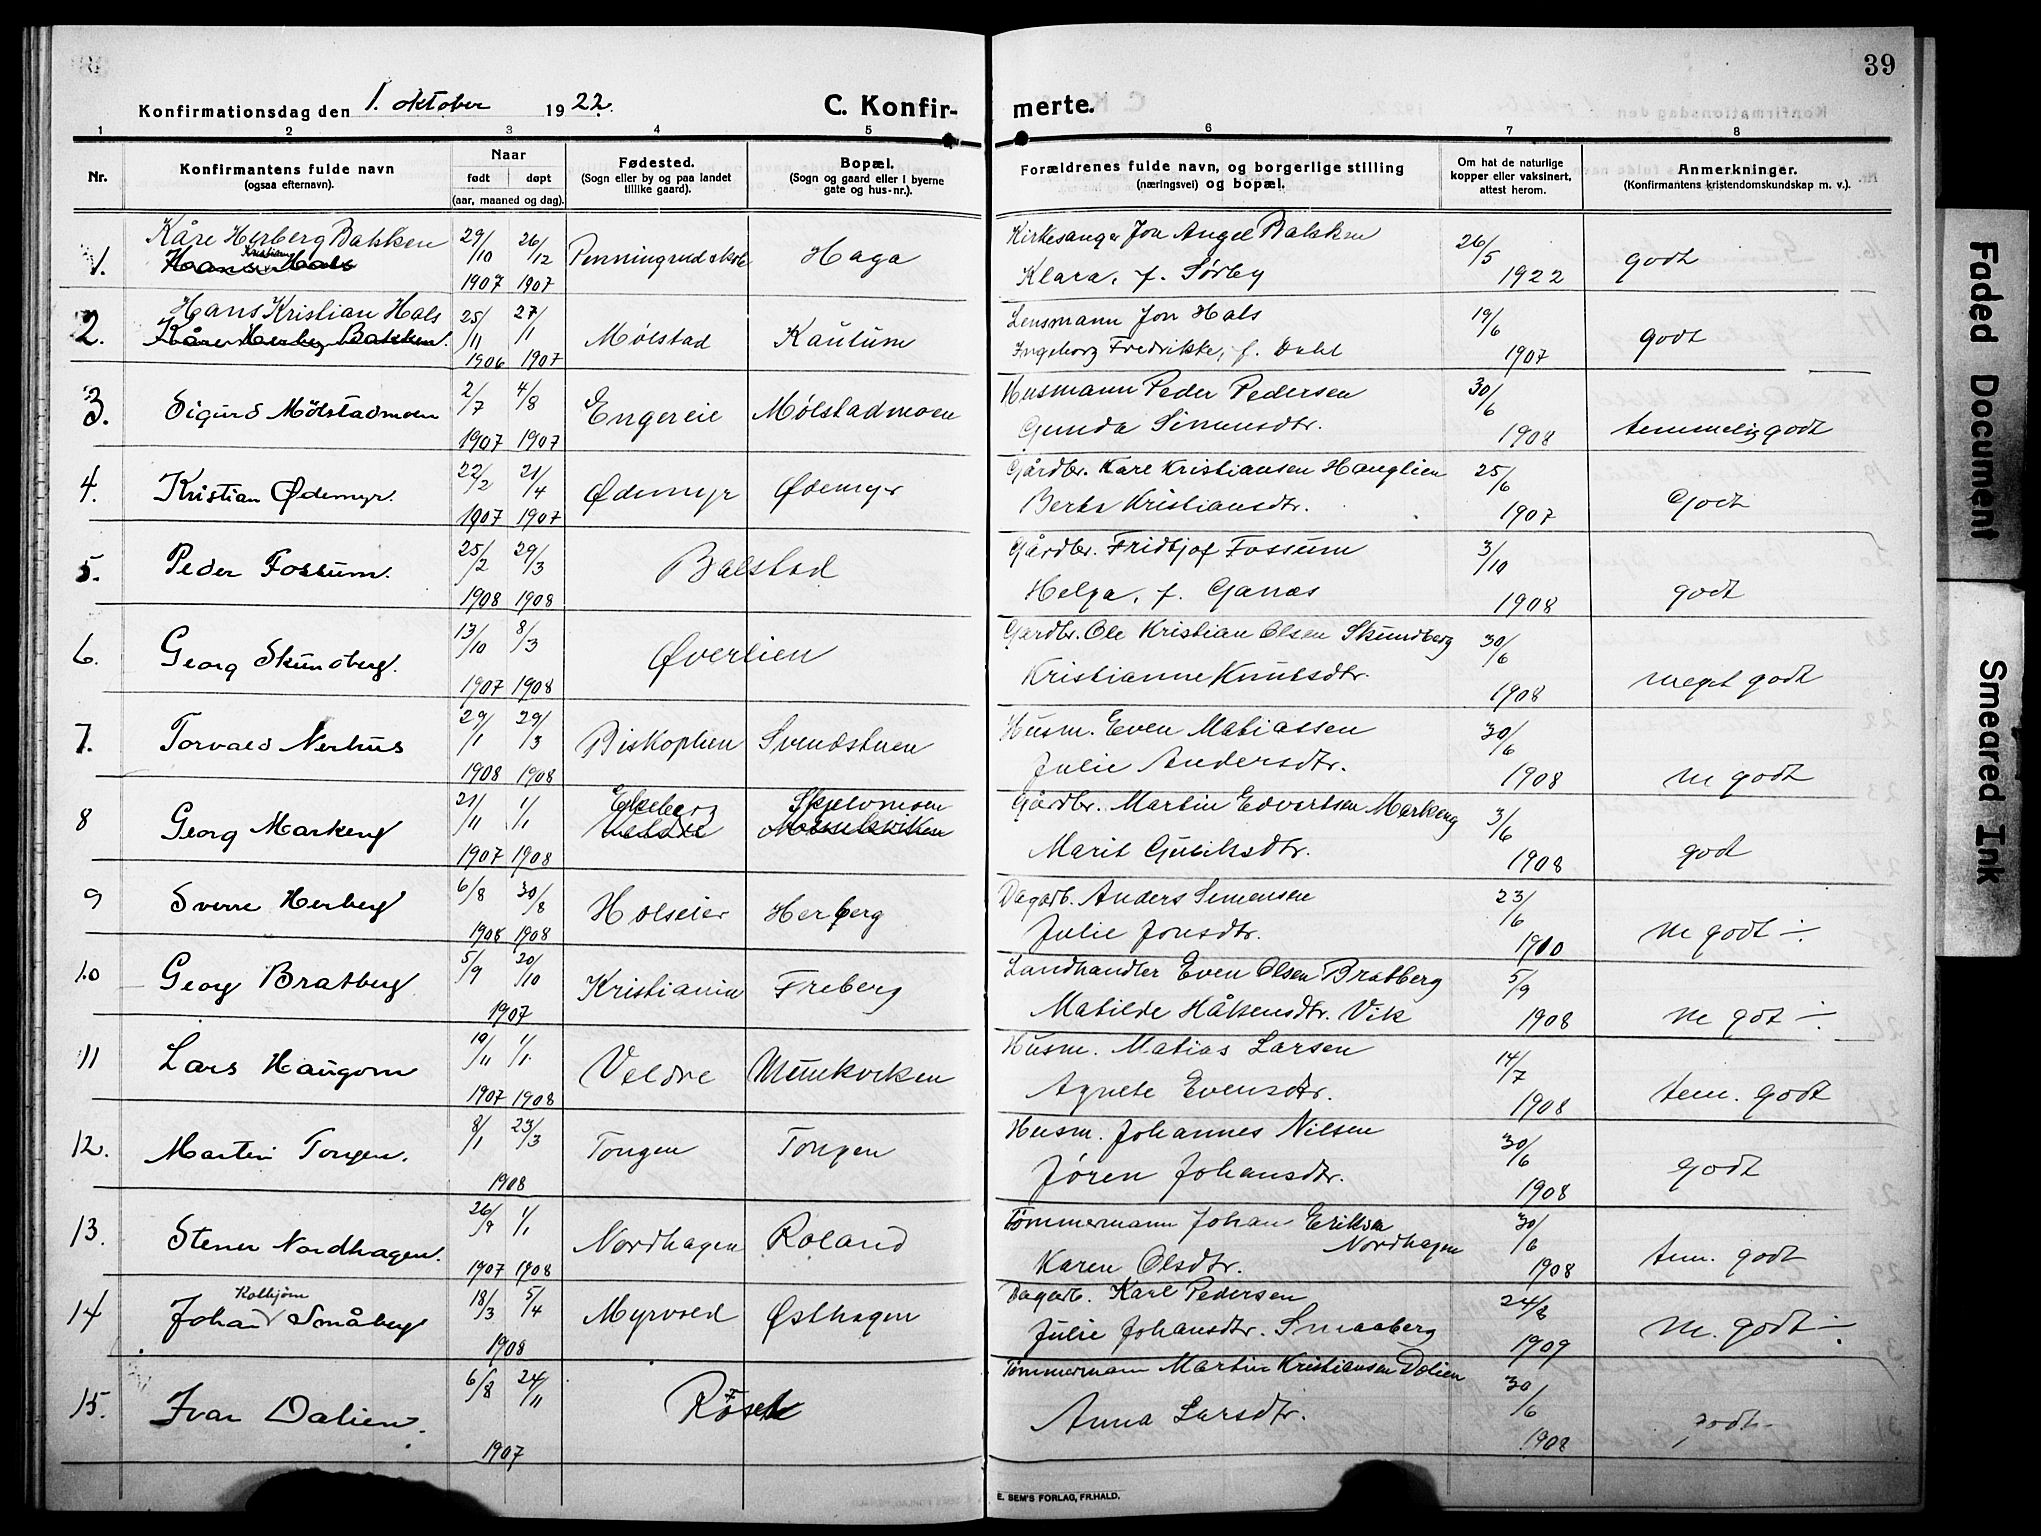 39
Konfirmationsdag den 1. oktober 1922.
C. Konfirmerte.
1 2 3 4 5 6 7 8
Nr.
Konfirmantens fulde navn
(ogsaa efternavn).
Naar
født døpt
(aar, maaned og dag).
Fødested.
(Sogn eller by og paa landet
tillike gaard).
Bopæl.
(Sogn og gaard eller i byerne
gate og hus-nr.).
Forældrenes fulde navn, og borgerlige stilling
(næringsvei) og bopæl.
Om hat de naturlige
kopper eller vaksinert,
attest herom.
Anmerkninger.
(Konfirmantens kristendomskundskap m. v.).
1. Kåre Herberg Bakken 29/10 1907 26/12 1907 Penningrud skole Haga
Hans Kristian Hals
Kirkesanger Jon Angel Bakken 26/5 1922 godt
Klara, f. Sørby
2. Hans Kristian Hals 25/11 1906 27/1 1907 Mølstad Kautum
Kåre Herberg Bakken.
Lensmann Jon Hals 19/6 1907 godt
Ingeborg Fredrikke, f. Dahl
3. Sigurd Mølstadmoen 2/7 1907 4/8 1907 Engereie Mølstadmoen
Husmann Peder Pedersen 30/6 1908 temmelig godt
Gunda Simensdtr.
4. Kristian Ødemyr. 22/2 1907 21/4 1907 Ødemyr Ødemyr
Gårdbr. Kare Kristiansen Hauglien 25/6 1907 Godt
Berte Kristiansdtr.
5. Peder Fossum. 25/2 1908 29/3 1908 Balstad
Gårdbr. Fridtjof Fossum 3/10 1908 godt
Helga, f. Ganæs
6. Georg Skundberg. 13/10 1907 8/3 1908 Øverlien
Gårdbr. Ole Kristian Olsen Skundberg 30/6 1908 meget godt
Kristianne Knutsdtr.
7. Torvald Nerhus 29/1 1908 29/3 1908 Biskoplien Svendstuen
Husm. Even Matiassen 30/6 1908 m godt
Julie Andersdtr.
8 Georg Markeng 21/11 1907 1/1 1908 Ekeberg Skjelvmoen
Gårdbr. Martin Edvartsen Markeng 3/6 1908 god
Marit Guliksdtr.
9 Sverre Herberg 6/8 1908 30/8 1908 Holseier Herberg
Dagarb. Anders Simensen 23/6 1910 m godt ÷
Julie Jonsdtr.
10 Georg Bratberg 5/9 20/10 1907 Kristiania Freberg
Landhandler Even Olsen Bratberg 5/9 1908 m got ÷
Matilde Håkensdtr. Vik
11 Lars Haugom 19/11 1907 1/1 1908 Veldre Munkviken
Husm. Matias Larsen 14/7 1908 tem. godt
Agnete Evensdtr.
12. Martin Tongen. 8/1 23/3 1908 Tongen Tongen
Husm. Johannes Nilsen 30/6 1908 godt
Jøren Johansdtr.
13. Stener Nordhagen. 26/9 1907 1/1 1908 Nordhagen Roland
Tømmermann Johan Eriksen Nordhagen 30/6 1908 tem. godt
Karen Olsdtr.
14 Johan Kolbjørn Småberg 18/3 5/4 1908 Myrvold Østhagen
Dagarb. Karl Pedersen 24/8 1909 m. godt ÷
Julie Johansdtr. Smaaberg
15. Ivar Dalien. 6/8 24/11 1907
Tømmermann Martin Kristiansen Dalien 30/6 1908 godt
Anna Larsdtr.
E. SEM'S FORLAG, FR.HALD.
Faded Document
Smeared Ink